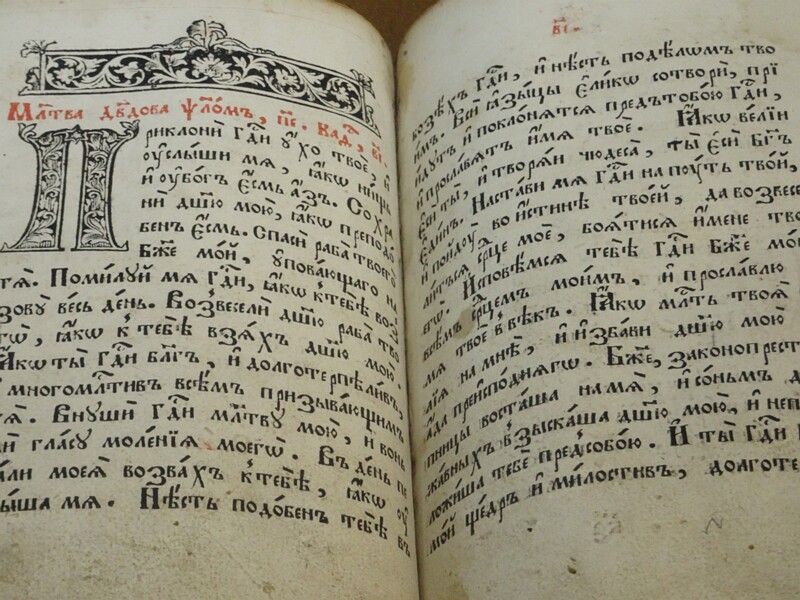 Мл҃тва дв҃дова ѱало́мъ, пє. каѳ, в҃і
Приклони гд҃и у́хо твоѐ, и҆
оу҆слы́ши мѧ, ꙗ҆́кѡ ни́щь
и҆ оу҆бо́гъ є҆́смь а҆́зъ. Сохра
нѝ дш҃ꙋ мою̀, ꙗ҆́кѡ преподо́
бенъ є҆́смь. Спасѝ раба̀ твоего̀
бж҃е мо́й, оу҆пова́ющаго на
тѧ̀. Поми́луй мѧ гд҃и, ꙗ҆́кѡ к тебѣ̀ воз
зову̀ весь де́нь. Возвеселѝ дш҃ꙋ раба̀ тво
его̀, ꙗ҆́кѡ к тебѣ̀ взѧ́хъ дш҃ꙋ мою̀.
Ꙗ҆́кѡ ты̀ гд҃и бл҃гъ, и҆ долготерпѣли́въ,
и҆ многомл҃тивъ всѣ́мъ призыва́ющимъ
тѧ̀. Внушѝ гд҃и мл҃тву мою̀, и҆ вонь
мѝ гла́су моле́нїѧ моегѡ̀. В де́нь пе
ча́ли моеѧ̀ возва́хъ к тебѣ̀, ꙗ҆́кѡ оу҆
слы́ша мѧ. Нѣ́сть подо́бенъ тебѣ̀ в
в҃і.
бозѣ́хъ гд҃и, и҆ нѣ́сть по дѣлѡ́мъ тво
и҆́мъ. Всѝ ꙗ҆зы́цы є҆ли́кѡ сотворѝ, прї
и҆́дутъ и҆ покло́нѧтсѧ предъ тобо́ю гд҃и,
и҆ просла́вѧтъ и҆́мѧ твоѐ. Ꙗ҆́кѡ ве́лїи
є҆сѝ ты̀, и҆ творѧ́и чюдеса̀, ты̀ є҆сѝ бг҃ъ
є҆ди́нъ. Наста́ви мѧ гд҃и на пу́ть тво́й,
и҆ пойду̀ во и҆́стинѣ твое́й, да возвесе
ли́тсѧ срⷣце моѐ, боѧ́тисѧ и҆́мене тво
егѡ̀. И҆сповѣ́мсѧ тебѣ̀ гд҃и бж҃е мо́й
всѣ́мъ срⷣцемъ мои́мъ, и҆ просла́влю
и҆́мѧ твоѐ в вѣ́къ. Ꙗ҆́кѡ мл҃ть твоѧ̀
ве́лїѧ на мнѣ̀, и҆ и҆зба́ви дш҃ꙋ мою̀
ѿ а҆́да преиспо́днѧгѡ. Бж҃е, законопрест
пницы воста́ша на мѧ̀, и҆ со́ньмъ де
ржа́вныхъ взыска́ша дш҃ꙋ мою̀, и҆ не пре
дложи́ша тебѐ пред собо́ю. И҆ ты̀ гд҃и бж҃е
мо́й ще́дръ и҆ ми́лостивъ, долготе